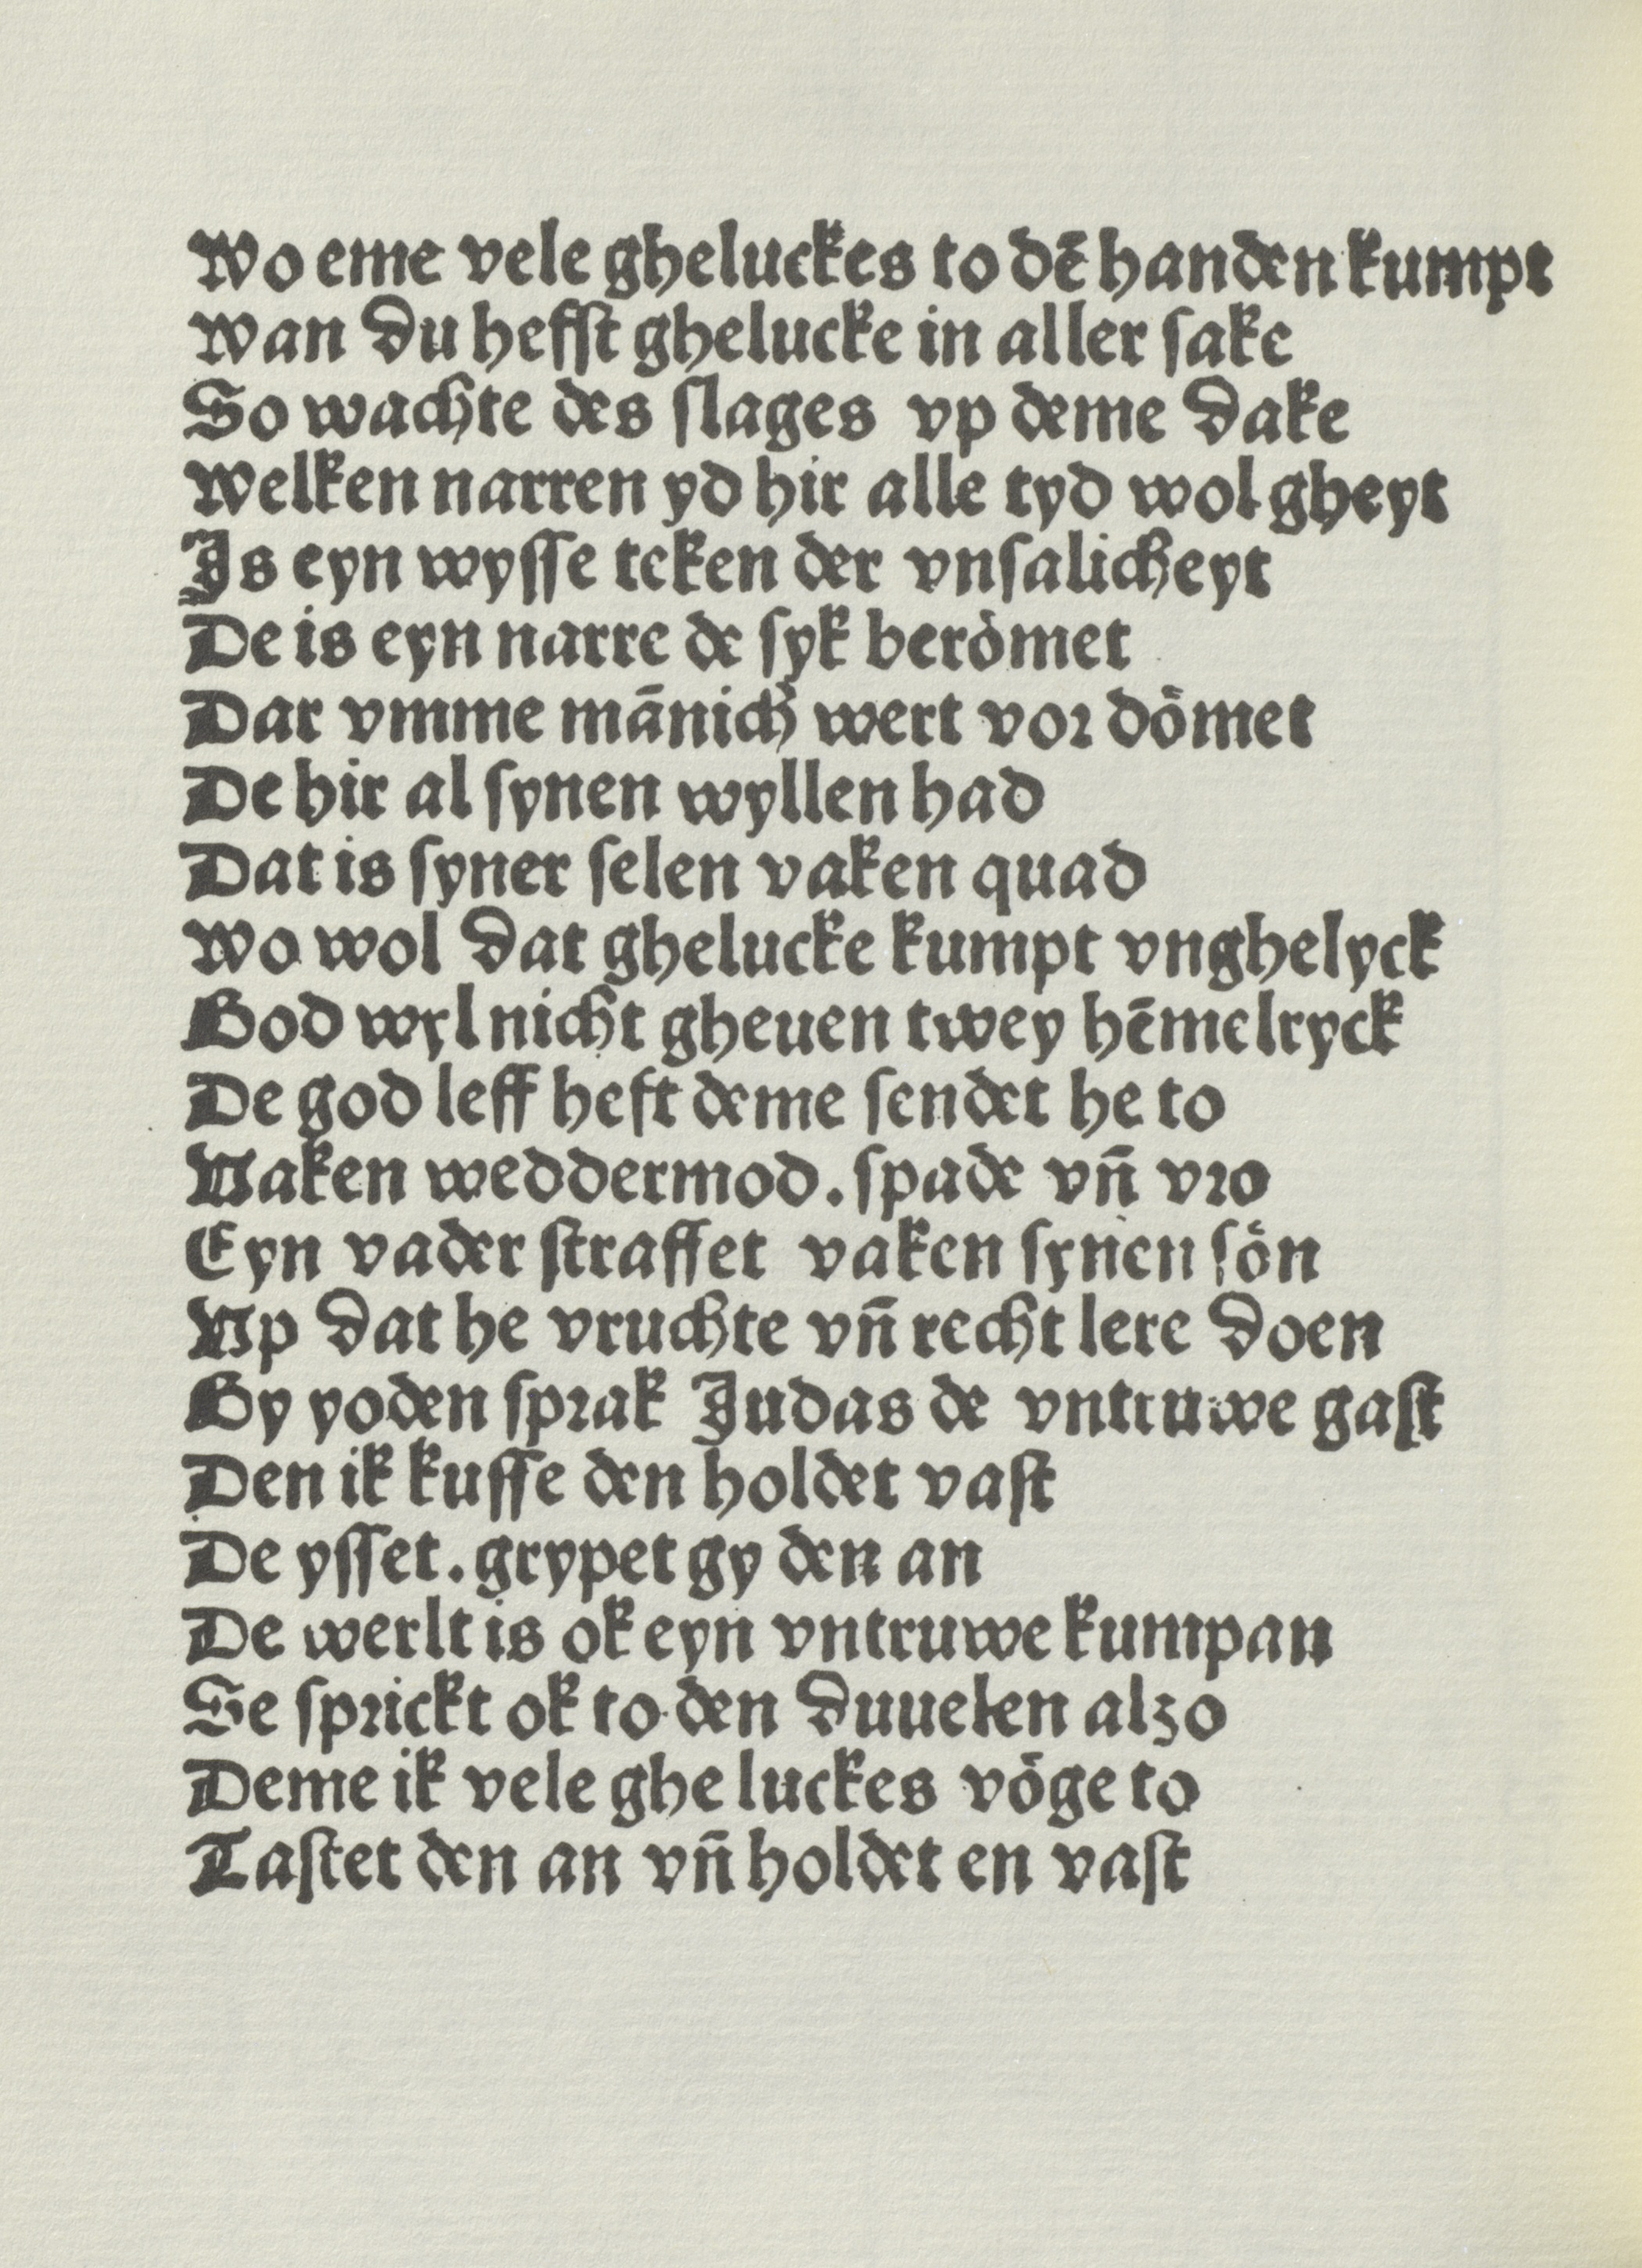 Wo eme vele gheluckes to dē handen kumpt
Wan du hefſt ghelucke in aller ſake
So wachte des ſlages vp deme dake
Welken narren yd hir alle tyd wol gheyt
Js eyn wyſſe teken der vnſalicheyt
De is eyn narre de ſyk berömet
Dar vmme mānich wert vor dömet
De hir al ſynen wyllen had
Dat is ſyner ſelen vaken quad
Wo wol dat ghelucke kumpt vnghelyck
God wyl nicht gheuen twey hēmelryck
De god leff heft deme ſendet he to
Vaken weddermod. ſpade vn̄ vro
Eyn vader ſtraffet vaken ſynen ſön
Vp dat he vruchte vn̄ recht lere doen
By yoden ſprak Judas de vntruwe gaſt
Den ik kuſſe den holdet vaſt
De yſſet. grypet gy den an
De werlt is ok eyn vntruwe kumpan
Se ſprickt ok to den duuelen alzo
Deme ik vele ghe luckes vöge to
Taſtet den an vn̄ holdet en vaſt